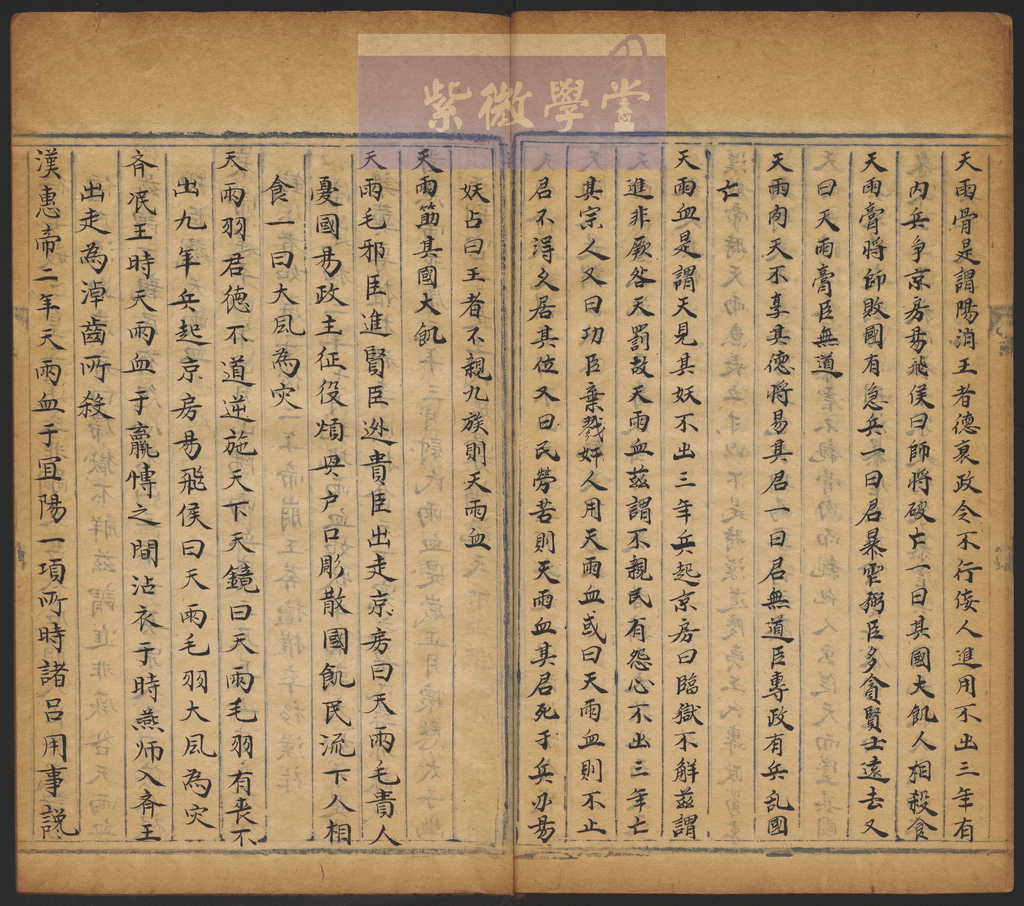 紫微學堂
天雨骨是謂陽消王者德衰政令不行佞人進用不出三年有
內兵爭京房易飛侯曰師將破亡一曰其國大飢人相殺食
天雨膏將帥敗國有急兵一曰君暴虐弼臣多貪賢士遠去又
曰天雨膏臣無道
天雨肉天不享其德將易其君一曰君無道臣專政有兵乱國
亡
天雨血是謂天見其妖不出三年兵起京房曰臨獄不解茲謂
進非厥咎天罰故天雨血茲謂不親民有怨心不出三年亡
其宗人又曰功臣棄戮奸人用天雨血或曰天雨血則不止
君不得久居其位又曰民勞苦則天雨血其君死于兵亦易
妖占曰王者不親九族則天雨血
天雨筋其國大飢
天雨毛邪臣進賢臣逊貴臣出走京房曰天雨毛貴人
憂國易政主征役煩毋户口彫散國飢民流下人相
食一曰大凬為灾
天雨羽君德不道逆施天下天鏡曰天雨毛羽有喪不
出九年兵起京房易飛侯曰天雨毛羽大凬為灾
斉泯王時天雨血于贏愽之間沾衣于時燕师入斉王
出走為淖齒所殺
漢惠帝二年天雨血于宜陽一項所時諸呂用事説